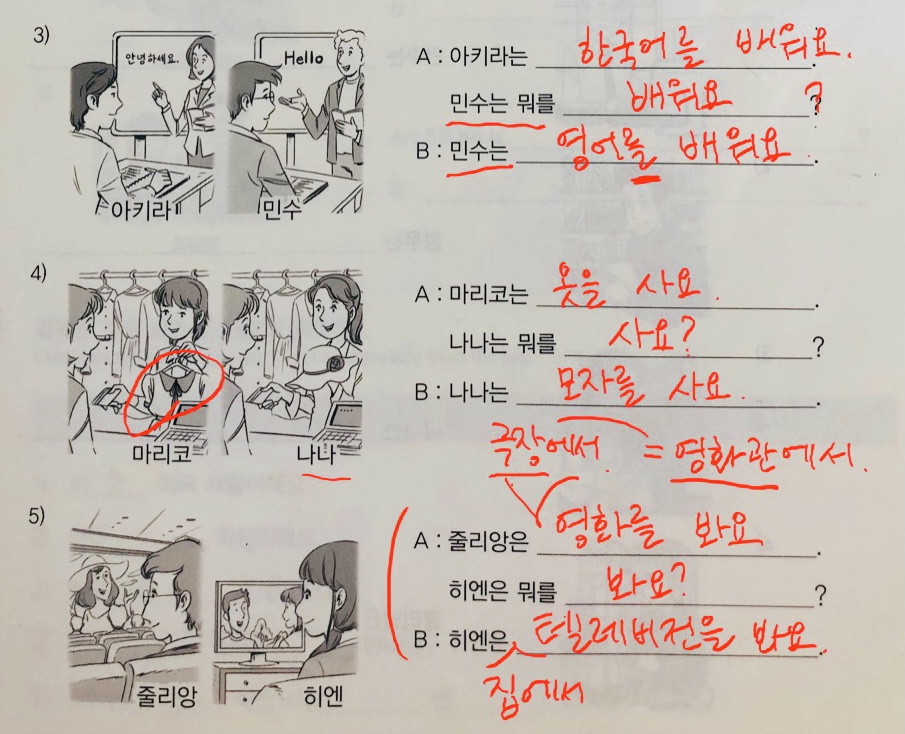 3)
안녕하세요.
Hello
아키라
민수
A : 아키라는 한국어를 배워요.
민수는 뭐를 배워요?
B : 민수는 영어를 배워요.
4)
마리코
나나
A : 마리코는 옷을 사요.
나나는 뭐를 사요? ?
B : 나나는 모자를 사요.
극장에서 = 영화관에서.
5)
줄리앙
히엔
A : 줄리앙은 영화를 봐요.
히엔은 뭐를 봐요? ?
B : 히엔은 텔레비전을 봐요.
집에서